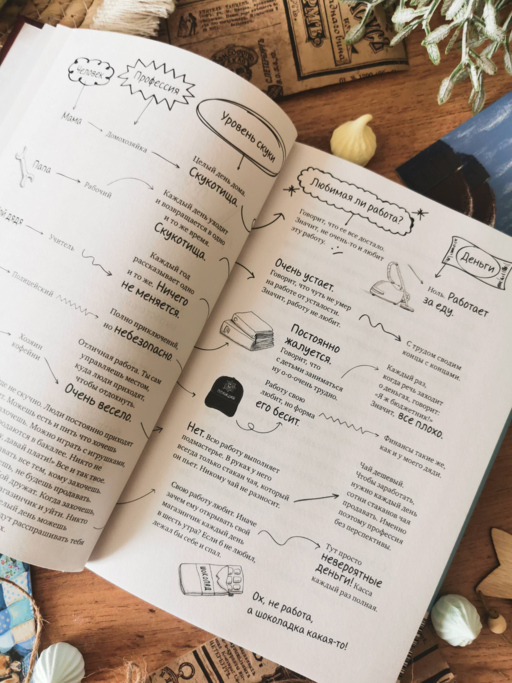 Человек
Профессия
Уровень скуки
Мама
домохозяйка
Целый день дома.
Скукотища.
Папа
Рабочий
Каждый день уходит
и возвращается в одно
и то же время.
Скукотища.
дядя
Учитель
Каждый год
рассказывает одно
и то же. Ничего
не меняется.
Полицейский
Полно приключений,
но небезопасно.
Хозяин
кофейни
Отличная работа. Ты сам
управляешь местом,
куда люди приходят,
чтобы отдохнуть.
Очень весело.
не скучно. Люди постоянно приходят
Можешь есть и пить что хочешь
захочешь. Можно играть с игрушками,
продаются в бакалее. Никто не
давай плати!» Все и так твое.
всем, кому захочешь,
не будешь продавать.
дружат. Когда захочешь,
магазинчик и уйти. Никто
целый день можешь
будут расспрашивать тебя
Любимая ли работа?
Деньги
Говорит, что ее все достало.
Значит, не очень-то и любит
эту работу.
Ноль. Работает
за еду.
Очень устает.
Говорит, что чуть не умер
на работе от усталости.
Значит, работу не любит.
С трудом сводим
концы с концами.
Постоянно
жалуется.
Говорит, что
с детьми заниматься
ну о-о-очень трудно.
Каждый раз,
когда речь заходит
о деньгах, говорит:
«Я ж бюджетник!».
Значит, все плохо.
Работу свою
любит, но форма
его бесит.
Финансы такие же,
как и у моего дяди.
Нет. Всю работу выполняет
подмастерье. В руках у него
всегда только стакан чая, который
он пьет. Никому чай не разносит.
Чай дешевый.
Чтобы заработать,
нужно каждый день
сотни стаканов чая
продавать. Именно
поэтому профессия
без перспективы.
Свою работу любит. Иначе
зачем ему открывать свой
магазинчик каждый день
в шесть утра? Если б не любил,
лежал бы себе и спал.
Тут просто
невероятные
деньги! Касса
каждый раз полная.
Ох, не работа,
а шоколадка какая-то!